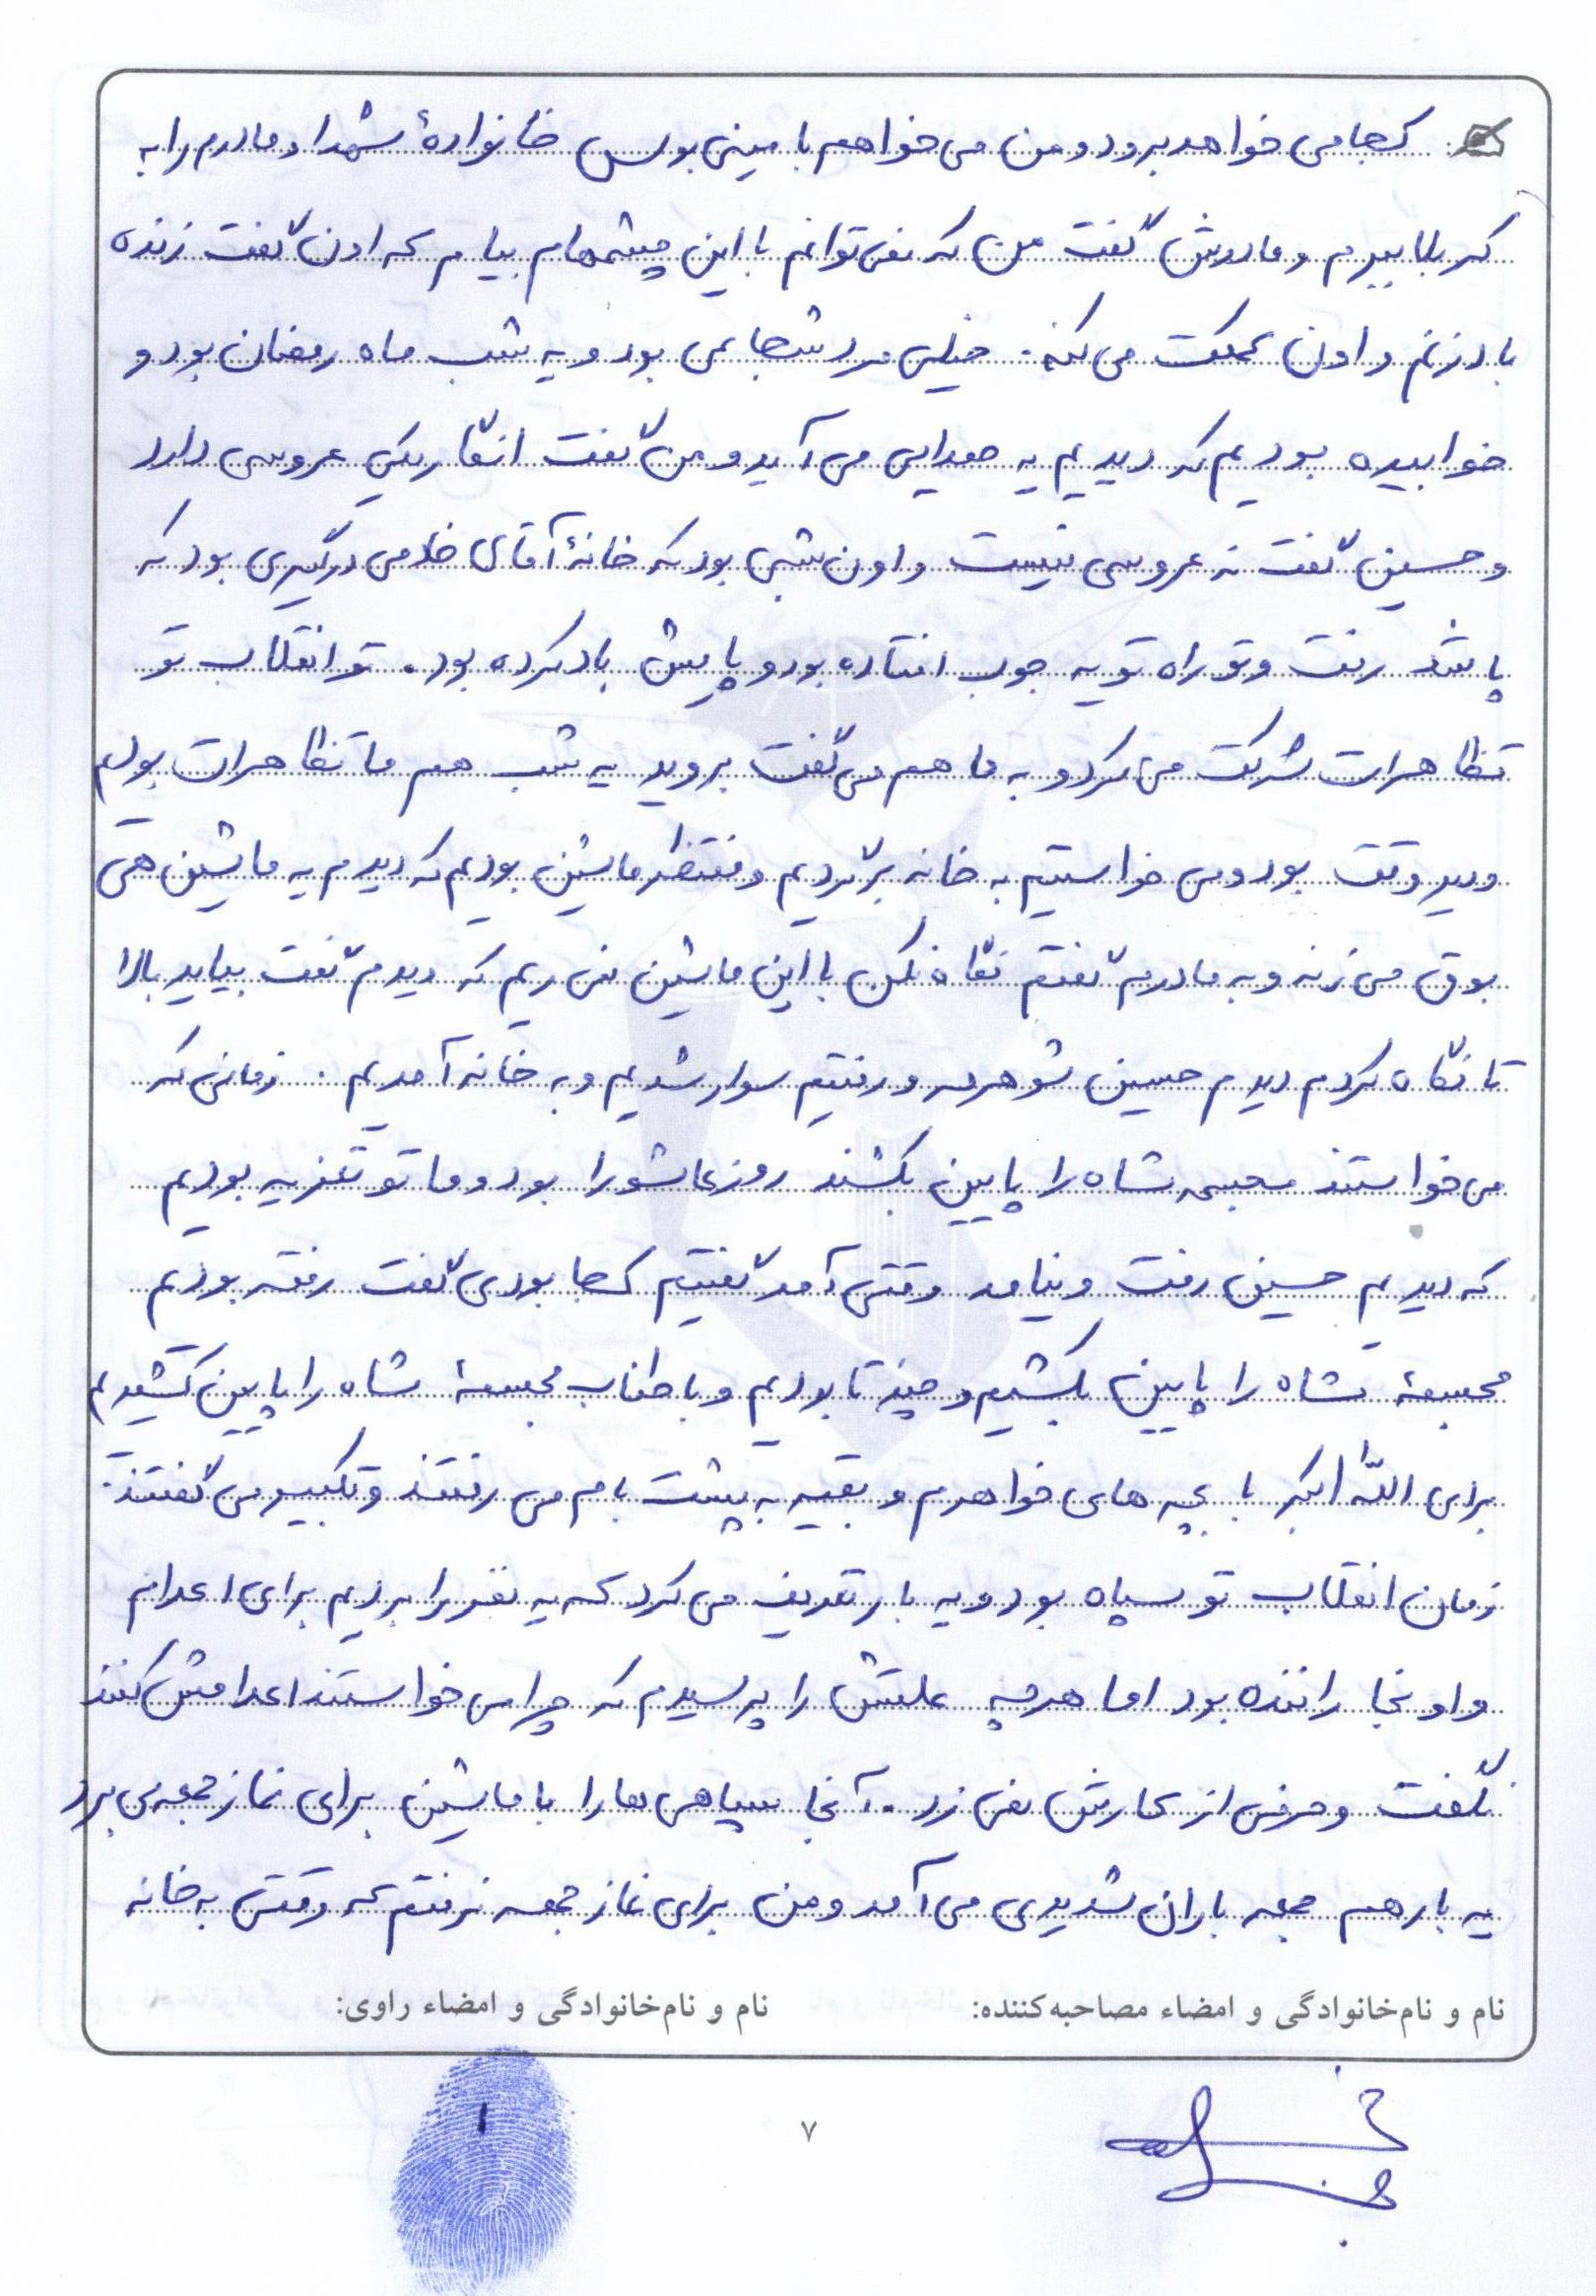 کجا می خواهد برود و من می خواهم با مینی بوس خانوادهٔ شهدا و مادرم را به
کربلا ببرم و مادرش گفت من که نمی توانم با این چشمهام بیام که اون گفت زنده
باد زنم و اون کمکت می کنه. خیلی مرد شجاعی بود و یه شب ماه رمضان بود و
خوابیده بودیم که دیدیم یه صدایی می آید و من گفت انگار یکی عروسی دارد
و حسین گفت نه عروسی نیست و اون شبی بود که خانهٔ آقای خادمی درگیری بود که
پا شد رفت و تو راه تو یه جوب افتاده بود و پایش باد کرده بود. تو انقلاب تو
تظاهرات شرکت می کرد و به ما هم می گفت بروید یه شب هم ما تظاهرات بودیم
و دیر وقت بود و می خواستیم به خانه برگردیم و منتظر ماشین بودیم که دیدم یه ماشین هی
بوق می زنه و به مادرم گفتم نگاه نکن با این ماشین نمی ریم که دیدم گفت بیاید بالا
تا نگاه کردم دیدم حسین شوهرمه و رفتیم سوار شدیم و به خانه آمدیم. زمانی که
می خواستند مجسمه شاه را پایین بکشند روز عاشورا بود و ما تو تعزیه بودیم
که دیدیم حسین رفت و نیامد وقتی آمد گفتیم کجا بودی گفت رفته بودیم
مجسمهٔ شاه را پایین بکشیم و چند تا بودیم و با طناب مجسمهٔ شاه را پایین کشیدیم
برای الله اکبر با بچه های خواهرم و بقیه به پشت بام می رفتند و تکبیر می گفتند.
زمان انقلاب تو سپاه بود و یه بار تعریف می کرد که یه نفر را بردیم برای اعدام
و اونجا راننده بود اما هرچه علتش را پرسیدم که چرا می خواستند اعدامش کنند
نگفت و حرفی از کارش نمی زد. آنجا سپاهی ها را با ماشین برای نماز جمعه می برد
یه بار هم جمعه باران شدیدی می آمد و من برای نماز جمعه نرفتم که وقتی به خانه
نام و نام‌خانوادگی و امضاء مصاحبه‌کننده: نام و نام‌خانوادگی و امضاء راوی:
۷